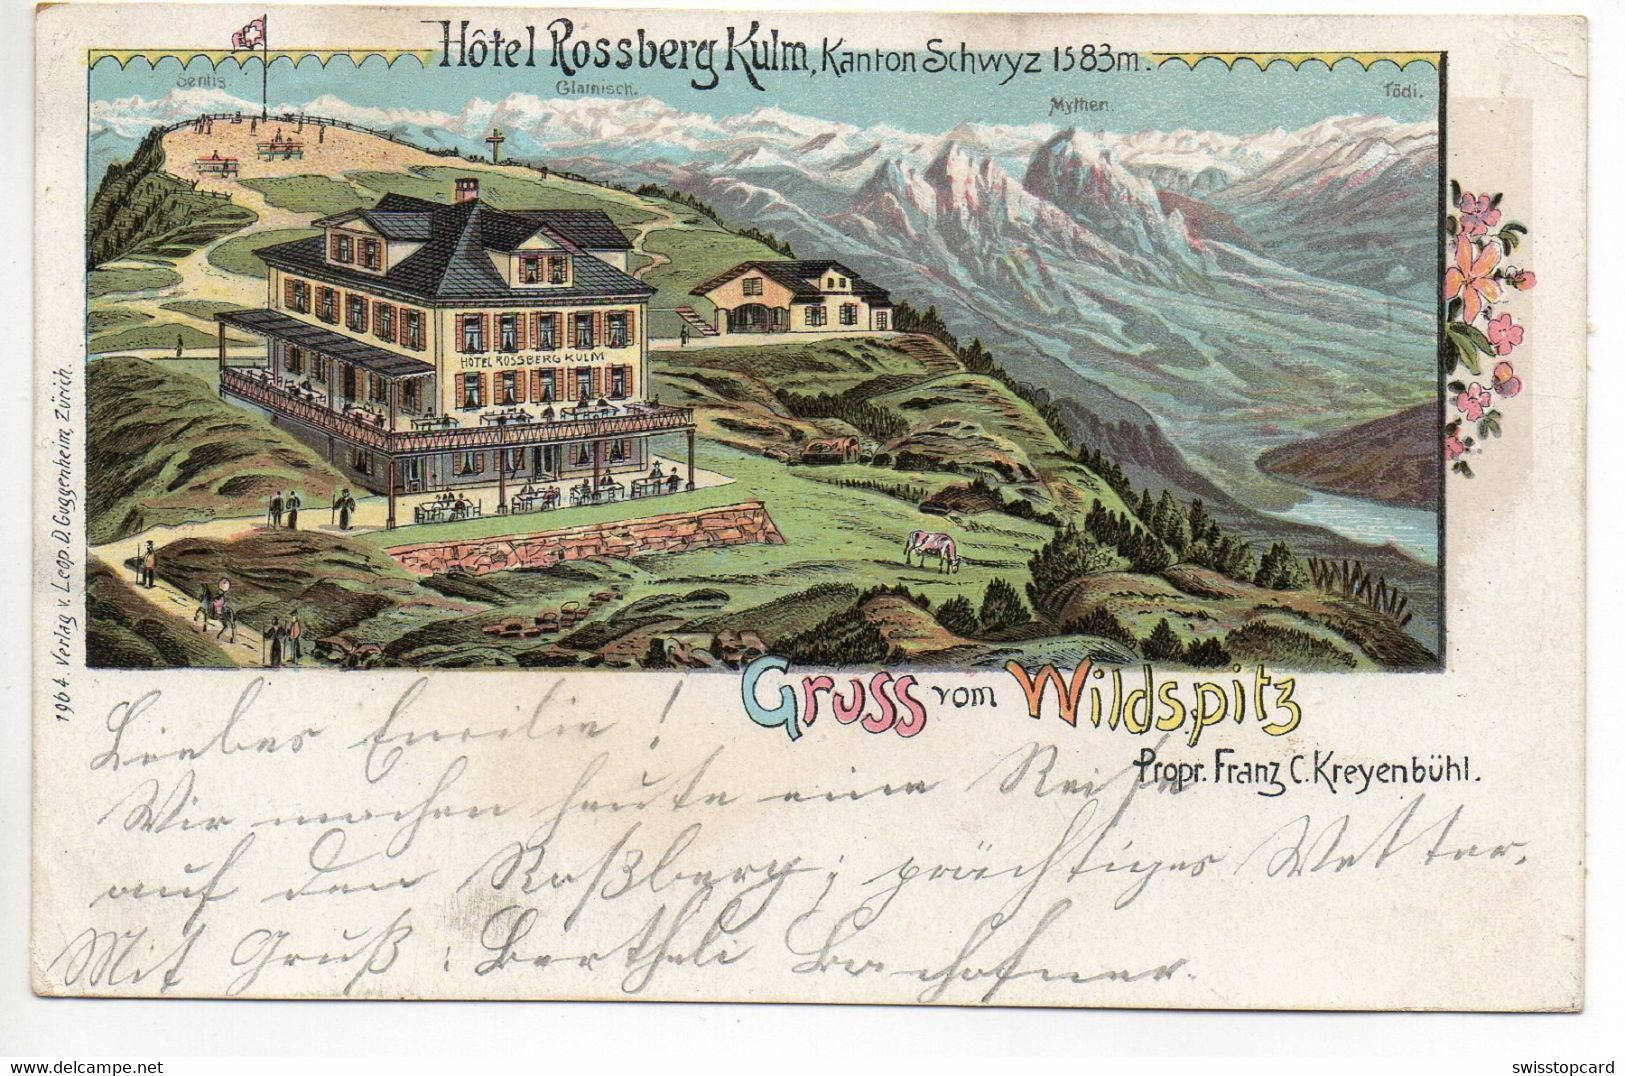 Hôtel Rossberg Kulm, Kanton Schwyz 1583m.
Sentis.
Glarnisch.
Mythen.
Tödi.
HOTEL ROSSBERG KULM
1964 Verlag v. Leop. D. Guggenheim, Zürich.
Gruss vom Wildspitz
Propr. Franz C. Kreyenbühl.
Liebes Emilie!
Wir machen heute eine Reise
auf den Roßberg; prächtiges Wetter.
Mit Gruß: Bertheli Bachofner.
delcampe.net
swisstopcard